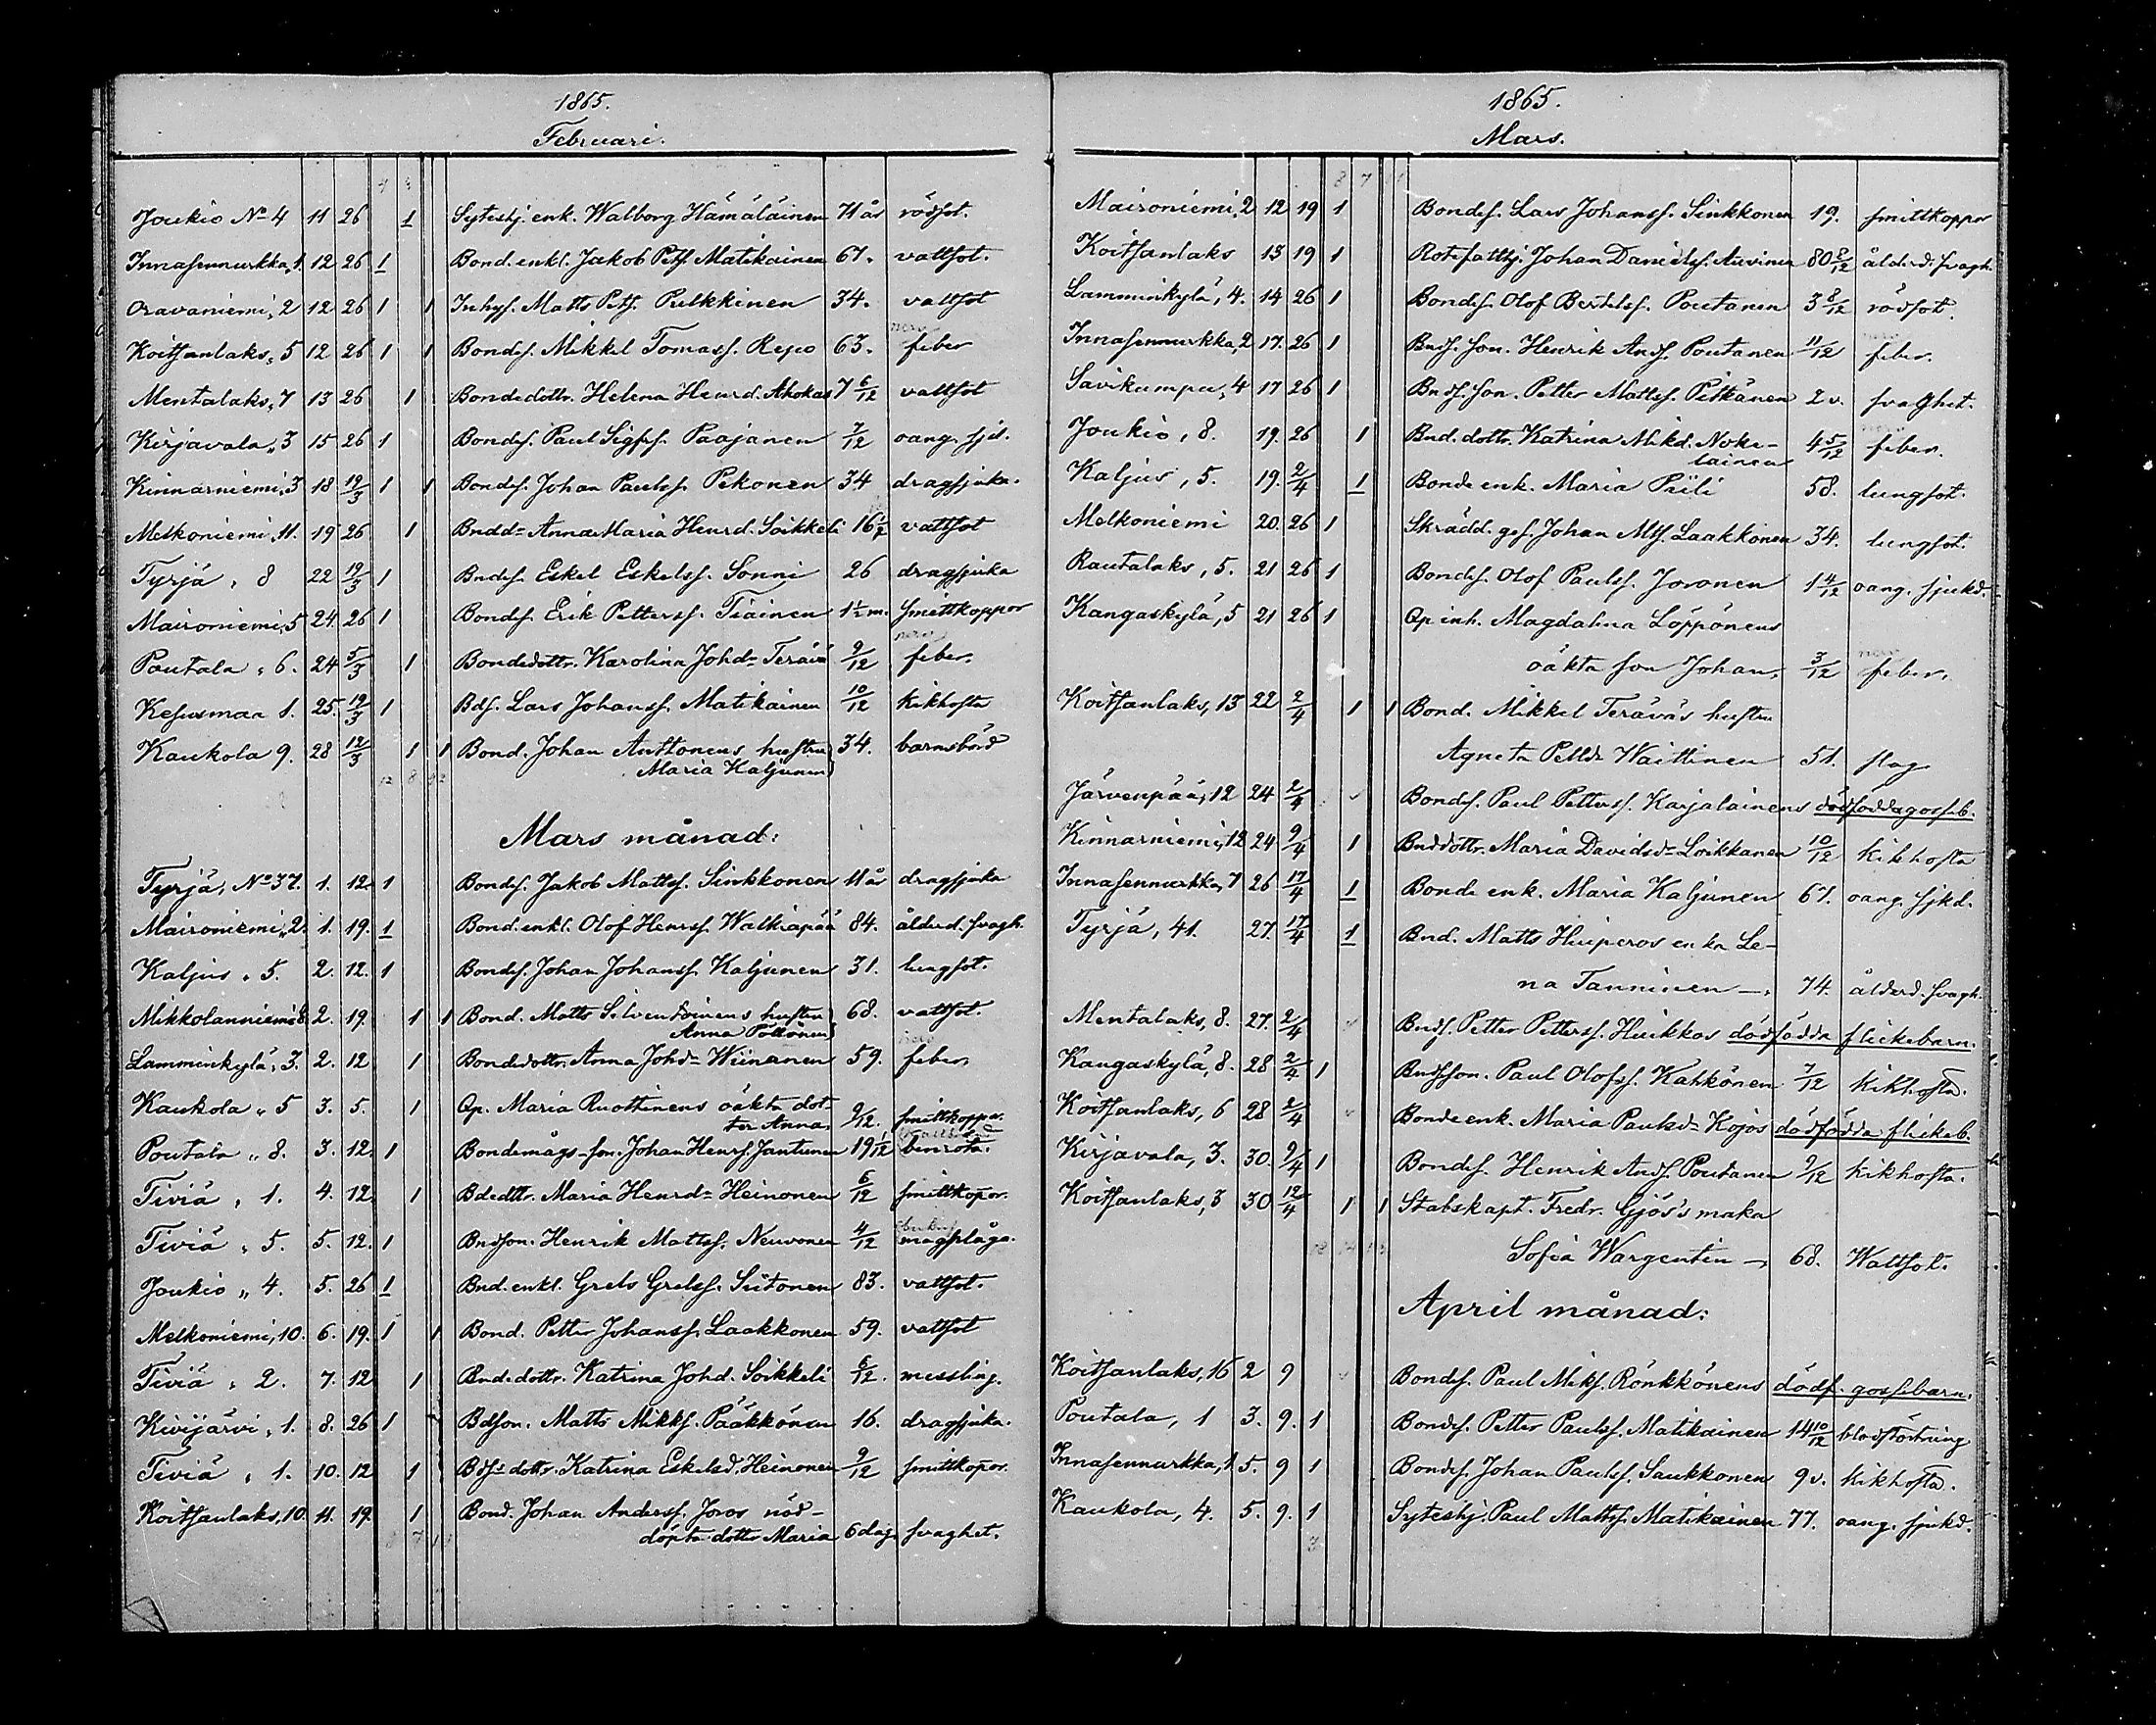 1865.
Februari.
Joukio No 4 11 26 1 Syteshj. enk. Walborg Hämäläinen 71 år rödsot.
Innasennurkka, 1. 12 26 1 Bond. enkl. Jakob Petss. Matikainen 67. vattsot.
Oravaniemi, 2 12 26 1 1 Inhys. Matts Pets. Pulkkinen 34. vattsot
Koitsanlaks, 5 12 26 1 1 Bondes. Mikkel Tomass. Repo 63. nerv feber
Mentalaks, 7 13 26 1 Bondedottr. Helena Henrd. Ahokas 7 6/12 vattsot
Kirjavala, 3 15 26 1 Bondes. Paul Sigfrs. Paajanen 7/12 oang. sjd.
Kinnarniemi, 3 18 19/3 1 1 Bondes. Johan Paulss. Pekonen 34 dragsjuka.
Melkoniemi, 11. 19 26 1 Bndd- Anna Maria Henrd. Soikkeli 16 1/2 vattsot
Tyrjä, 8 22 19/3 1 Bndes. Eskel Eskelss. Sonni 26 dragsjuka
Maironiemi, 5 24. 26 1 Bondes. Erik Petterss. Tiainen 1 1/2 m. smittkoppor
Poutala, 6. 24 5/3 1 Bondedottr. Karolina Johd- Terävä 9/12 nerv feber.
Kesusmaa 1. 25. 19/3 1 Bds. Lars Johanss. Matikainen 10/12 kikhosta
Kaukola 9. 28 12/3 1 1 Bond. Johan Anttonens hustru 34. barnsbörd
Maria Kaljunen
12 8
Mars månad:
Tyrjä, No 37. 1. 12. 1 Bondes. Jakob Mattss. Sinkkonen 11 år dragsjuka
Maironiemi, 2. 1. 19. 1 Bond. enkl. Olof Henrss. Walkiapää 84. ålderd. svagh.
Kaljus, 5. 2. 12. 1 Bondes. Johan Johanss. Kaljunen 31. lungsot.
Mikkolanniemi 8 2. 19. 1 1 Bond. Matts Silventoinens hustru 68. vattsot.
Anna Pöllönen
Lamminkylä, 3. 2. 12 1 Bondedottr. Anna Johd- Wiinanen 59. nerv feber.
Kaukola, 5 3. 5. 1 Qp. Maria Ruottinens oäkta dot-
ter Anna. 9/12. smittkoppor.
Poutala, 8. 3. 12. 1 Bondemågs-son. Johan Henrs. Jantunen 19 1/12 benröta.
Tiviä, 1. 4. 12 1 Bdedttr. Maria Henrd- Heinonen 6/12 smittkopor.
Tiviä, 5. 5. 12. 1 Bndson. Henrik Mattss. Neuvonen 4/12 magplåga.
Joukio, 4. 5. 26 1 Bnd. enkl. Grels Grelss. Siitonen 83. vattsot.
Melkoniemi, 10. 6. 19. 1 1 Bond. Petter Johanss. Laakkonen 59. vattsot
Tiviä, 2. 7. 12 1 Bndedottr. Katrina Johd. Soikkeli 6/12. messling.
Kivijärvi, 1. 8. 26 1 Bdson. Matts Mikks. Pääkkönen 16. dragsjuka.
Tiviä, 1. 10. 12 1 Bds dottr. Katrina Eskelsd. Heinonen 9/12 smittkopor.
Koitsanlaks, 10. 11. 19. 1 Bond. Johan Anderss. Joros nöd-
döpta dottr Maria 6 dag. svaghet.
1865.
Mars.
8 7
Maironiemi, 2 12 19 1 Bondes. Lars Johanss. Sinkkonen 19. smittkoppor
Koitsanlaks 13 19 1 Rotefatthj. Johan Danielss. Auvinen 80 2/12 ålderd. svagh.
Lamminkylä, 4. 14 26 1 Bondes. Olof Bertelss. Poutanen 3 8/12 rödsot.
Innasennurkka, 2 17. 26 1 Bnds. son. Henrik Ands. Poutanen 11/12 feber.
Savikumpu, 4 17 26 1 Bnds. son. Petter Mattss. Pitkänen 2 v. svaghet.
Joukio, 8. 19. 26 1 Bnd. dottr. Katrina Mikd. Noke-
lainen 4 5/12 feber.
Kaljus, 5. 19. 2/4 1 Bonde enk. Maria Piili 58. lungsot.
Melkoniemi 20. 26 1 Skrädd. ges. Johan Mts. Laakkonen 34. lungsot.
Rautalaks, 5. 21 26 1 Bondes. Olof Paulss. Joronen 1 4/12 oang. sjukd.
Kangaskylä, 5 21 26 1 Qp inh. Magdalena Löppönens
oäkta son Johan, 3/12 nerv feber.
Koitsanlaks, 13 22 2/4 1 1 Bond. Mikkel Teräväs hustru
Agneta Pettd. Waittinen 51. slag
Järvenpää, 12 24 2/4 Bondes. Paul Petterss. Karjalainens dödfödda gosseb.
Kinnarniemi, 12 24 9/4 1 Bnddottr. Maria Davidsd- Loikkanen 10/12 kikhosta
Innasennurkka, 7 26 17/4 1 Bonde enk. Maria Kaljunen 67. oang. sjkd.
Tyrjä, 41. 27. 17/4 1 Bnd. Matts Huiperos enka Le-
na Tanninen -. 74. ålderd. svagh.
Mentalaks, 8. 27. 2/4 Bnds. Petter Petterss. Huikkas dödfödda flickebarn.
Kangaskylä, 8. 28 2/4 1 Bndsson. Paul Olofss. Kähkönen 7/12 kikhosta.
Koitsanlaks, 6 28 2/4 Bonde enk. Maria Paulsd- Kojos dödfödda flickeb.
Kirjavala, 3. 30. 9/4 1 Bondes. Henrik Ands. Poutanen 9/12 kikhosta.
Koitsanlaks, 3 30 12/4 1 1 Stabskapt. Fredr. Gjös's maka
Sofia Wargentin - 68. Wattsot.
April månad:
Koitsanlaks, 16 2 9 Bondes. Paul Miks. Rönkkönens dödf. gossebarn.
Poutala, 1 3. 9. 1 Bondes. Petter Paulss. Matikainen 14 10/12 blodstörtning
Innasennurkka, 1 5. 9 1 Bondes. Johan Paulss. Saukkonen 9 v. kikhosta.
Kaukola, 4. 5. 9. 1 Syteshj. Paul Mattss. Matikainen 77. oang. sjukd.
3